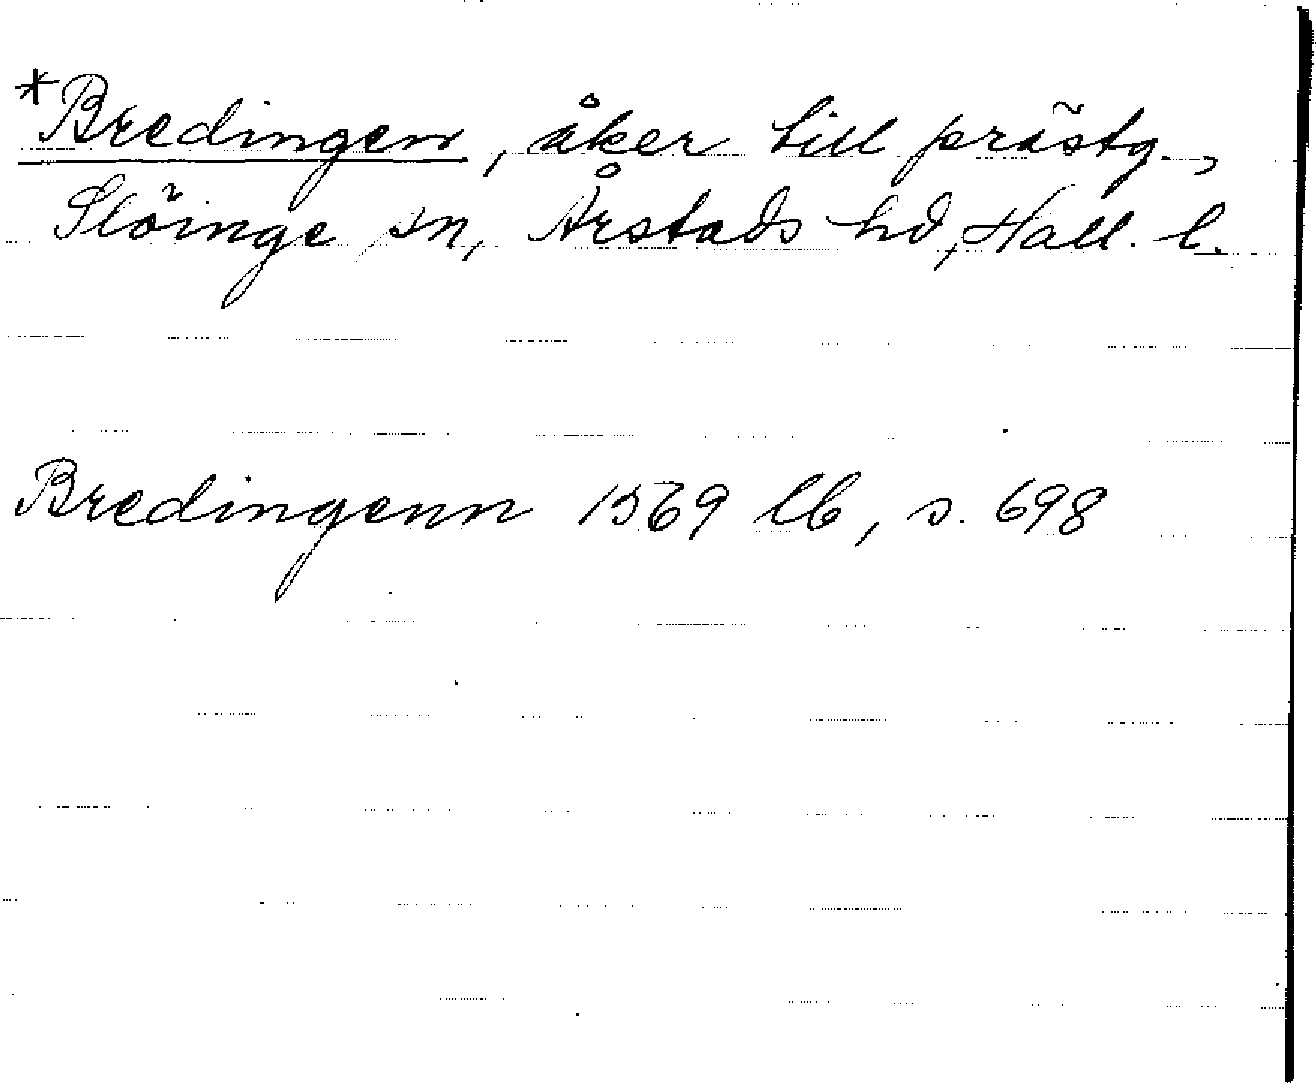 *Bredingen, åker till prästg.,
Slöinge sn, Årstads hd, Hall. l.
Bredingenn 1569 lb, s. 698